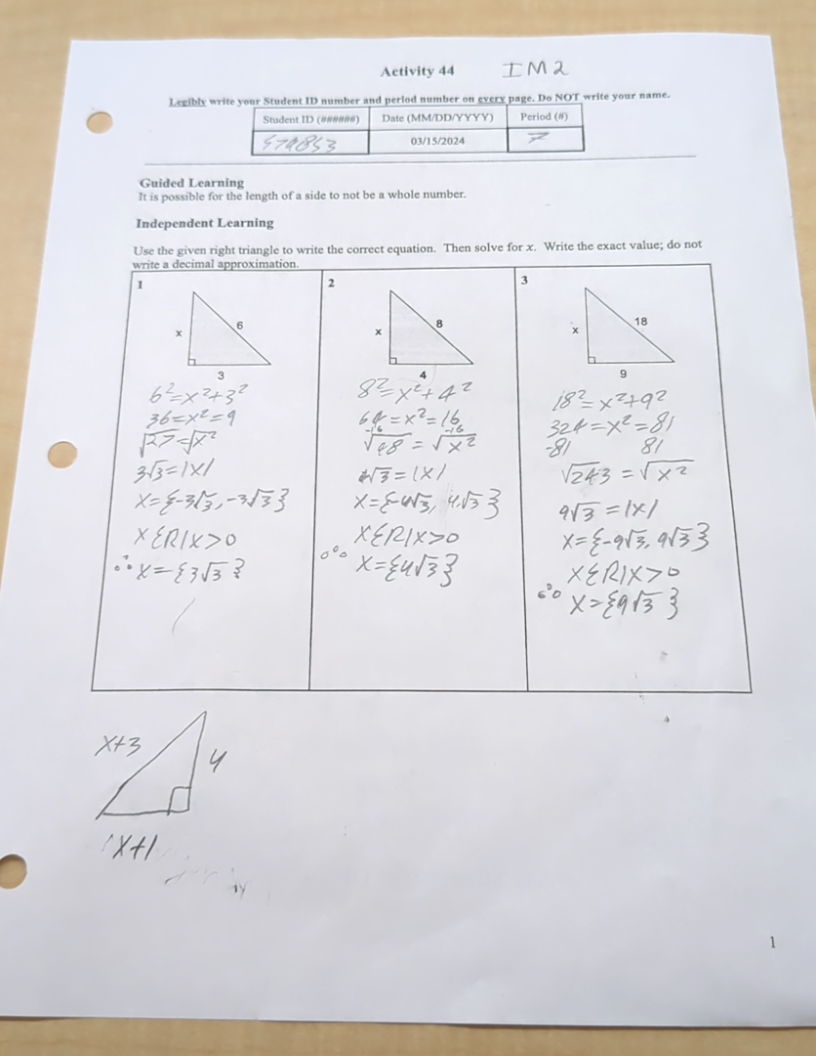 Activity 44 IM2
Legibly write your Student ID number and period number on every page. Do NOT write your name.
Student ID (######) Date (MM/DD/YYYY) Period (#)
579853 03/15/2024 7
Guided Learning
It is possible for the length of a side to not be a whole number.
Independent Learning
Use the given right triangle to write the correct equation. Then solve for x. Write the exact value; do not
write a decimal approximation.
1
x 6
3
6²=x²+3²
36=x²=9
√27=√x²
3√3=|x|
x={-3√3,-3√3}
x{R|x>0
∴x={3√3}
2
x 8
4
8²=x²+4²
64=x²=16
-16 -16
√48=√x²
4√3=|x|
x={-4√3, 4√3}
x{R|x>0
∴ x={4√3}
3
x 18
9
18²=x²+9²
324=x²=81
-81 81
√243=√x²
9√3=|x|
x={-9√3, 9√3}
x{R|x>0
∴ x={9√3}
x+3
4
x+1
1